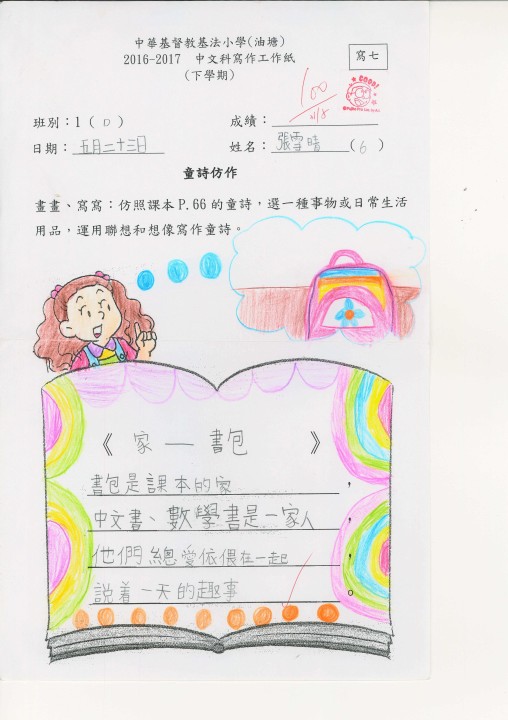 中華基督教基法小學(油塘)
2016-2017 中文科寫作工作紙
(下學期)
寫七
100
GOOD!
班別：1（D）
成績：
日期：五月二十三日
姓名：張雪晴（6）
童詩仿作
畫畫、寫寫：仿照課本 P.66 的童詩，選一種事物或日常生活
用品，運用聯想和想像寫作童詩。
《家 — 書包》
書包是課本的家，
中文書、數學書是一家人，
他們總愛依偎在一起，
說着一天的趣事。